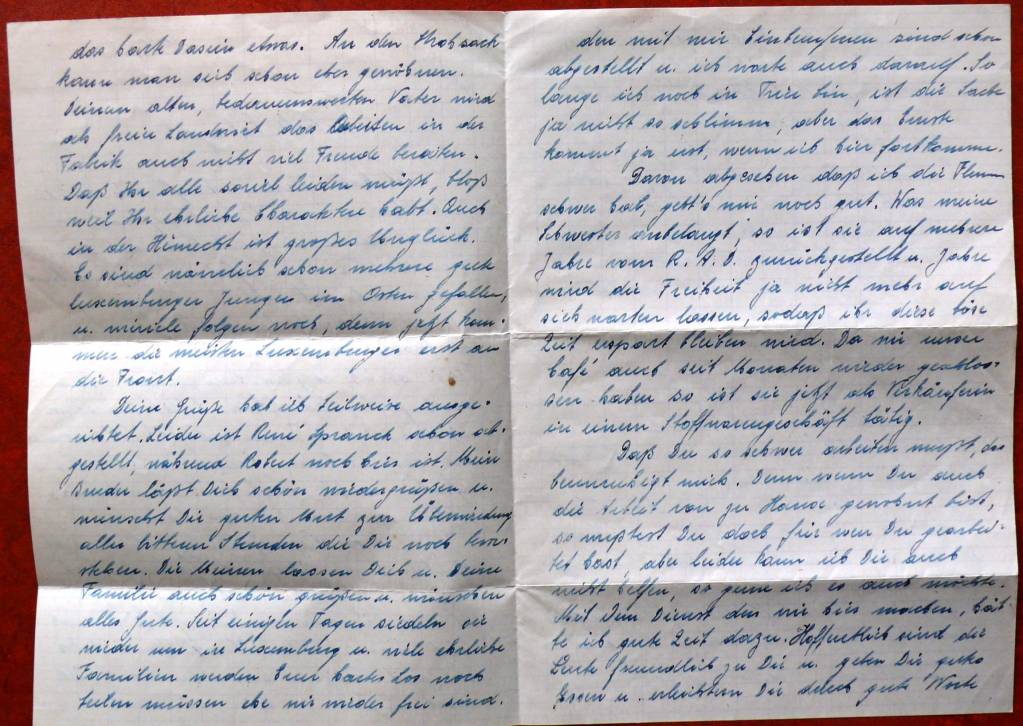 das harte Dasein etwas. An den Strohsack
kann man sich schon eher gewöhnen.
Deinem alten, bedauernswerten Vater wird
als freier Landwirt das Arbeiten in der
Fabrik auch nicht viel Freude bereiten.
Daß Ihr alle soviel leiden müßt, bloß
weil Ihr ehrliche Charaktere habt. Auch
in der Hémecht ist großes Unglück.
Es sind nämlich schon mehrere gute
luxemburger Jungen im Osten gefallen,
u. wieviele folgen noch, denn jetzt kom-
men die meisten Luxemburger erst an
die Front.
Deine Grüße hab ich teilweise ausge-
richtet. Leider ist René Spranck schon ab-
gestellt, während Robert noch hier ist. Mein
Bruder läßt Dich schön wiedergrüßen u.
wünscht Dir guten Mut zur Überwindung
aller bittren Stunden die Dir noch bevor-
stehen. Die Meinen lassen Dich u. Deine
Familie auch schön grüßen u. wünschen
alles Gute. Seit einigen Tagen siedeln sie
wieder um in Luxemburg u. viele ehrliche
Familien werden Euer hartes Los noch
teilen müssen ehe wir wieder frei sind.
den mit mir Einberufenen sind schon
abgestellt u. ich warte auch darauf. So
lange ich noch in Trier bin, ist die Sache
ja nicht so schlimm, aber das Ernste
kommt ja erst, wenn ich hier fortkomme.
Davon abgesehen daß ich die Flemm
schwer hab, geht's mir noch gut. Was meine
Schwester anbelangt, so ist sie auf mehrere
Jahre vom R. A. D. zurückgestellt u. Jahre
wird die Freiheit ja nicht mehr auf
sich warten lassen, sodaß ihr diese böse
Zeit erspart bleiben wird. Da wir unser
Café auch seit Monaten wieder geschlos-
sen haben so ist sie jetzt als Verkäuferin
in einem Stoffwarengeschäft tätig.
Daß Du so schwer arbeiten mußt, das
beunruhigt mich. Denn wenn Du auch
die Arbeit von zu Hause gewohnt bist,
so wußtest Du doch für wen Du gearbei-
tet hast, aber leider kann ich Dir auch
nicht helfen, so gern ich es auch möchte.
Mit dem Dienst den wir hier machen, hät-
te ich gute Zeit dazu. Hoffentlich sind die
Leute freundlich zu Dir u. geben Dir gutes
Essen u. erleichtern Dir durch gute Worte